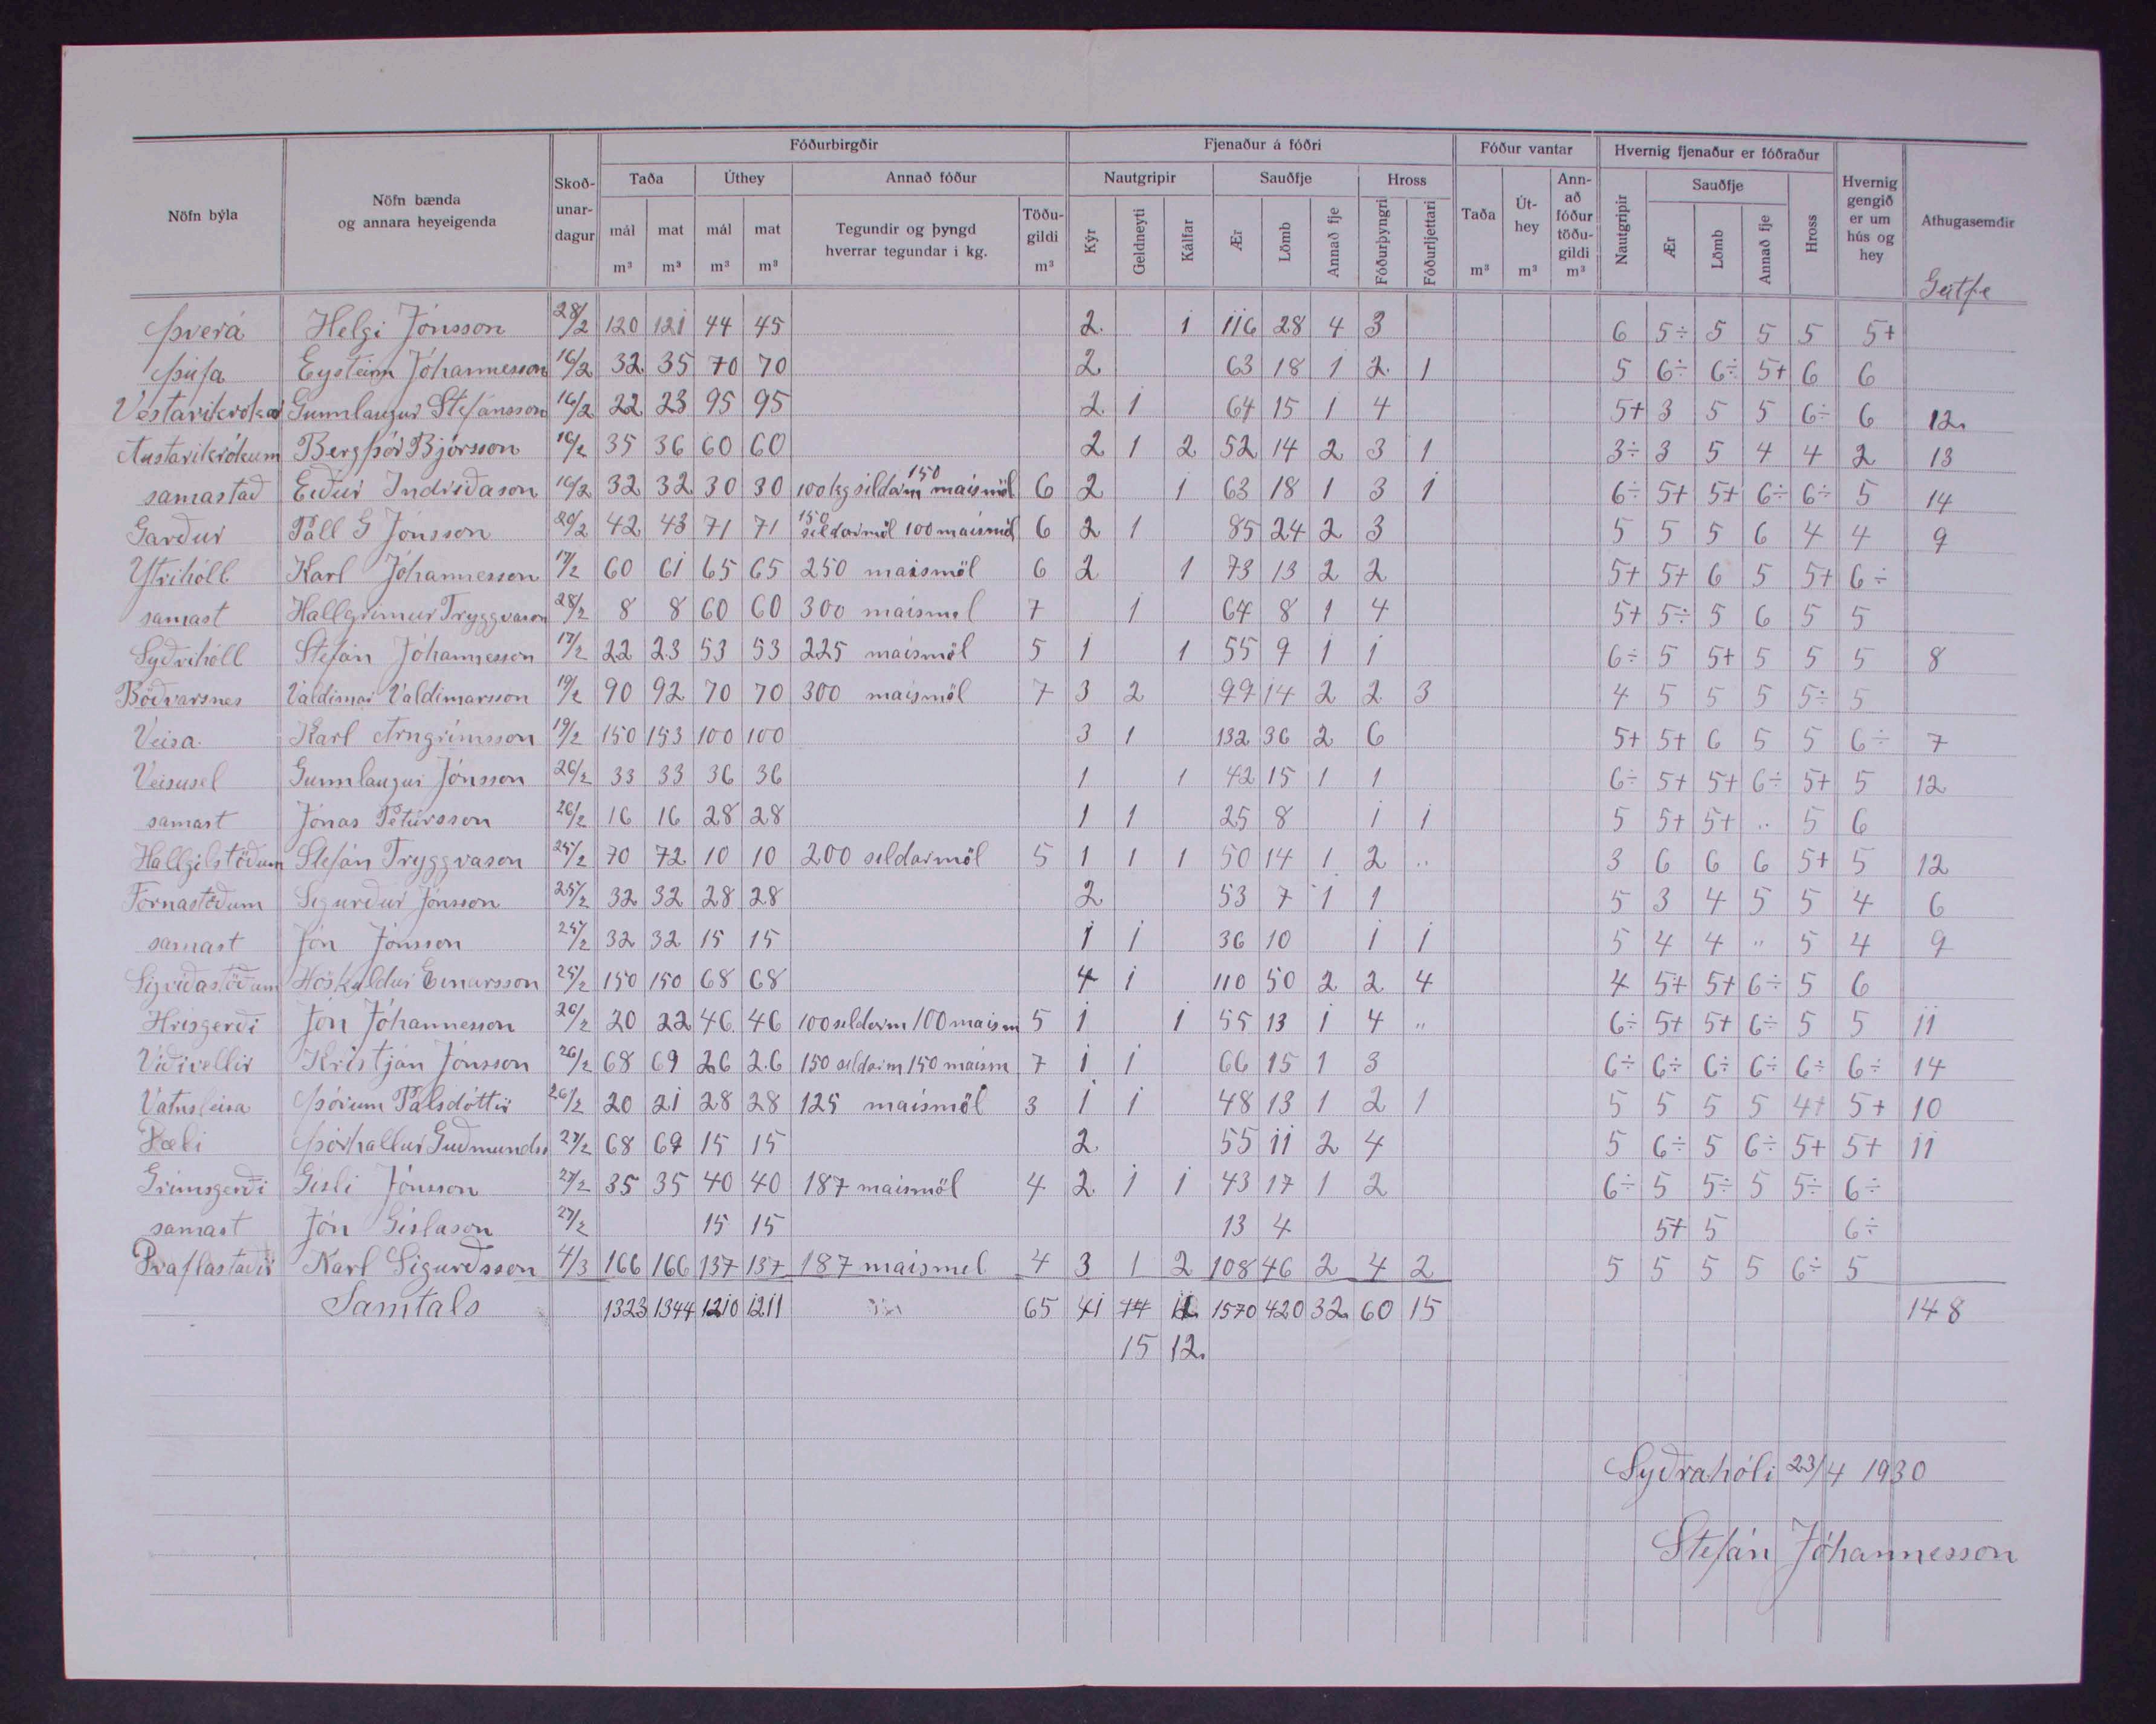 Fóðurbirgðir Fjenaður á fóðri Fóður vantar Hvernig fjenaður er fóðraður
Nöfn býla Nöfn bænda og annara heyeigenda Skoð-unar-dagur Taða Úthey Annað fóður Nautgripir Sauðfje Hross Taða m³ Út-hey m³ Ann-að fóður töðu-gildi m³ Nautgripir Sauðfje Hross Hvernig gengið er um hús og hey Athugasemdir
mál m³ mat m³ mál m³ mat m³ Tegundir og þyngd hverrar tegundar í kg. Töðu-gildi m³ Kýr Geldneyti Kálfar Ær Lömb Annað fje Fóðurþyngri Fóðurljettari Ær Lömb Annað fje
Þverá Helgi Jónsson 28/2 120 121 44 45 2 1 116 28 4 3 6 5÷ 5 5 5 5+
Þúfa Eysteinn Jóhannesson 16/2 32 35 70 70 2 63 18 1 2 1 5 6÷ 6÷ 5+ 6 6
Vestarikrókar Gunnlaugur Stefánsson 16/2 22 23 95 95 2 1 64 15 1 4 5+ 3 5 5 6÷ 6 12
Austarikrókum Bergþór Björsson 16/2 35 36 60 60 2 1 2 52 14 2 3 1 3÷ 3 5 4 4 2 13
samastað Eiður Indriðason 16/2 32 32 30 30 100 kg sildarm 150 maismöl 6 2 1 63 18 1 3 1 6÷ 5+ 5+ 6÷ 6÷ 5 14
Garður Páll G Jónsson 20/2 42 43 71 71 150 sildarmöl 100 maismöl 6 2 1 85 24 2 3 5 5 5 6 4 4 9
Ytrihóll Karl Jóhannesson 17/2 60 61 65 65 250 maismöl 6 2 1 73 13 2 2 5+ 5+ 6 5 5+ 6÷
samast Hallgrimur Tryggvason 28/2 8 8 60 60 300 maismel 7 1 64 8 1 4 5+ 5÷ 5 6 5 5
Syðrihóll Stefán Jóhannesson 17/2 22 23 53 53 225 maismöl 5 1 1 55 9 1 1 6÷ 5 5+ 5 5 5 8
Böðvarsnes Valdimar Valdimarsson 19/2 90 92 70 70 300 maismöl 7 3 2 99 14 2 2 3 4 5 5 5 5÷ 5
Veisa Karl Arngrímsson 19/2 150 153 100 100 3 1 132 36 2 6 5+ 5+ 6 5 5 6÷ 7
Veisusel Gunnlaugur Jónsson 26/2 33 33 36 36 1 1 42 15 1 1 6÷ 5+ 5+ 6÷ 5+ 5 12
samast Jónas Pétursson 26/2 16 16 28 28 1 1 25 8 1 1 5 5+ 5+ .. 5 6
Hallgilstöðum Stefán Tryggvason 25/2 70 72 10 10 200 sildarmöl 5 1 1 1 50 14 1 2 .. 3 6 6 6 5+ 5 12
Fornastöðum Sigurður Jónsson 25/2 32 32 28 28 2 53 7 1 1 5 3 4 5 5 4 6
samast Jón Jónsson 25/2 32 32 15 15 1 1 36 10 1 1 5 4 4 " 5 4 9
Sigríðastöðum Höskuldur Einarsson 25/2 150 150 68 68 4 1 110 50 2 2 4 4 5+ 5+ 6÷ 5 6
Hrisgerði Jón Jóhannesson 26/2 20 22 46 46 100 sildarm 100 maism 5 1 1 55 13 1 4 " 6÷ 5+ 5+ 6÷ 5 5 11
Viðivellir Kristján Jónsson 26/2 68 69 26 26 150 sildarm 150 maism 7 1 1 66 15 1 3 6÷ 6÷ 6÷ 6÷ 6÷ 6÷ 14
Vatnsleisa Þórunn Pálsdóttir 26/2 20 21 28 28 125 maismöl 3 1 1 48 13 1 2 1 5 5 5 5 4+ 5+ 10
Hæli Þórhallur Guðmunds 27/2 68 69 15 15 2 55 11 2 4 5 6÷ 5 6÷ 5+ 5+ 11
Grimsgerði Gisli Jónsson 27/2 35 35 40 40 187 maismöl 4 2 1 1 43 17 1 2 6÷ 5 5÷ 5 5÷ 6÷
samast Jón Gislason 27/2 15 15 13 4 5+ 5 6÷
Draflastaðir Karl Sigurðsson 4/3 166 166 137 137 187 maismel 4 3 1 2 108 46 2 4 2 5 5 5 5 6÷ 5
Samtals 1323 1344 1210 1211 65 41 14 11 1570 420 32 60 15 148
15 12
Syðrahóli 23/4 1930
Stefán Jóhannesson